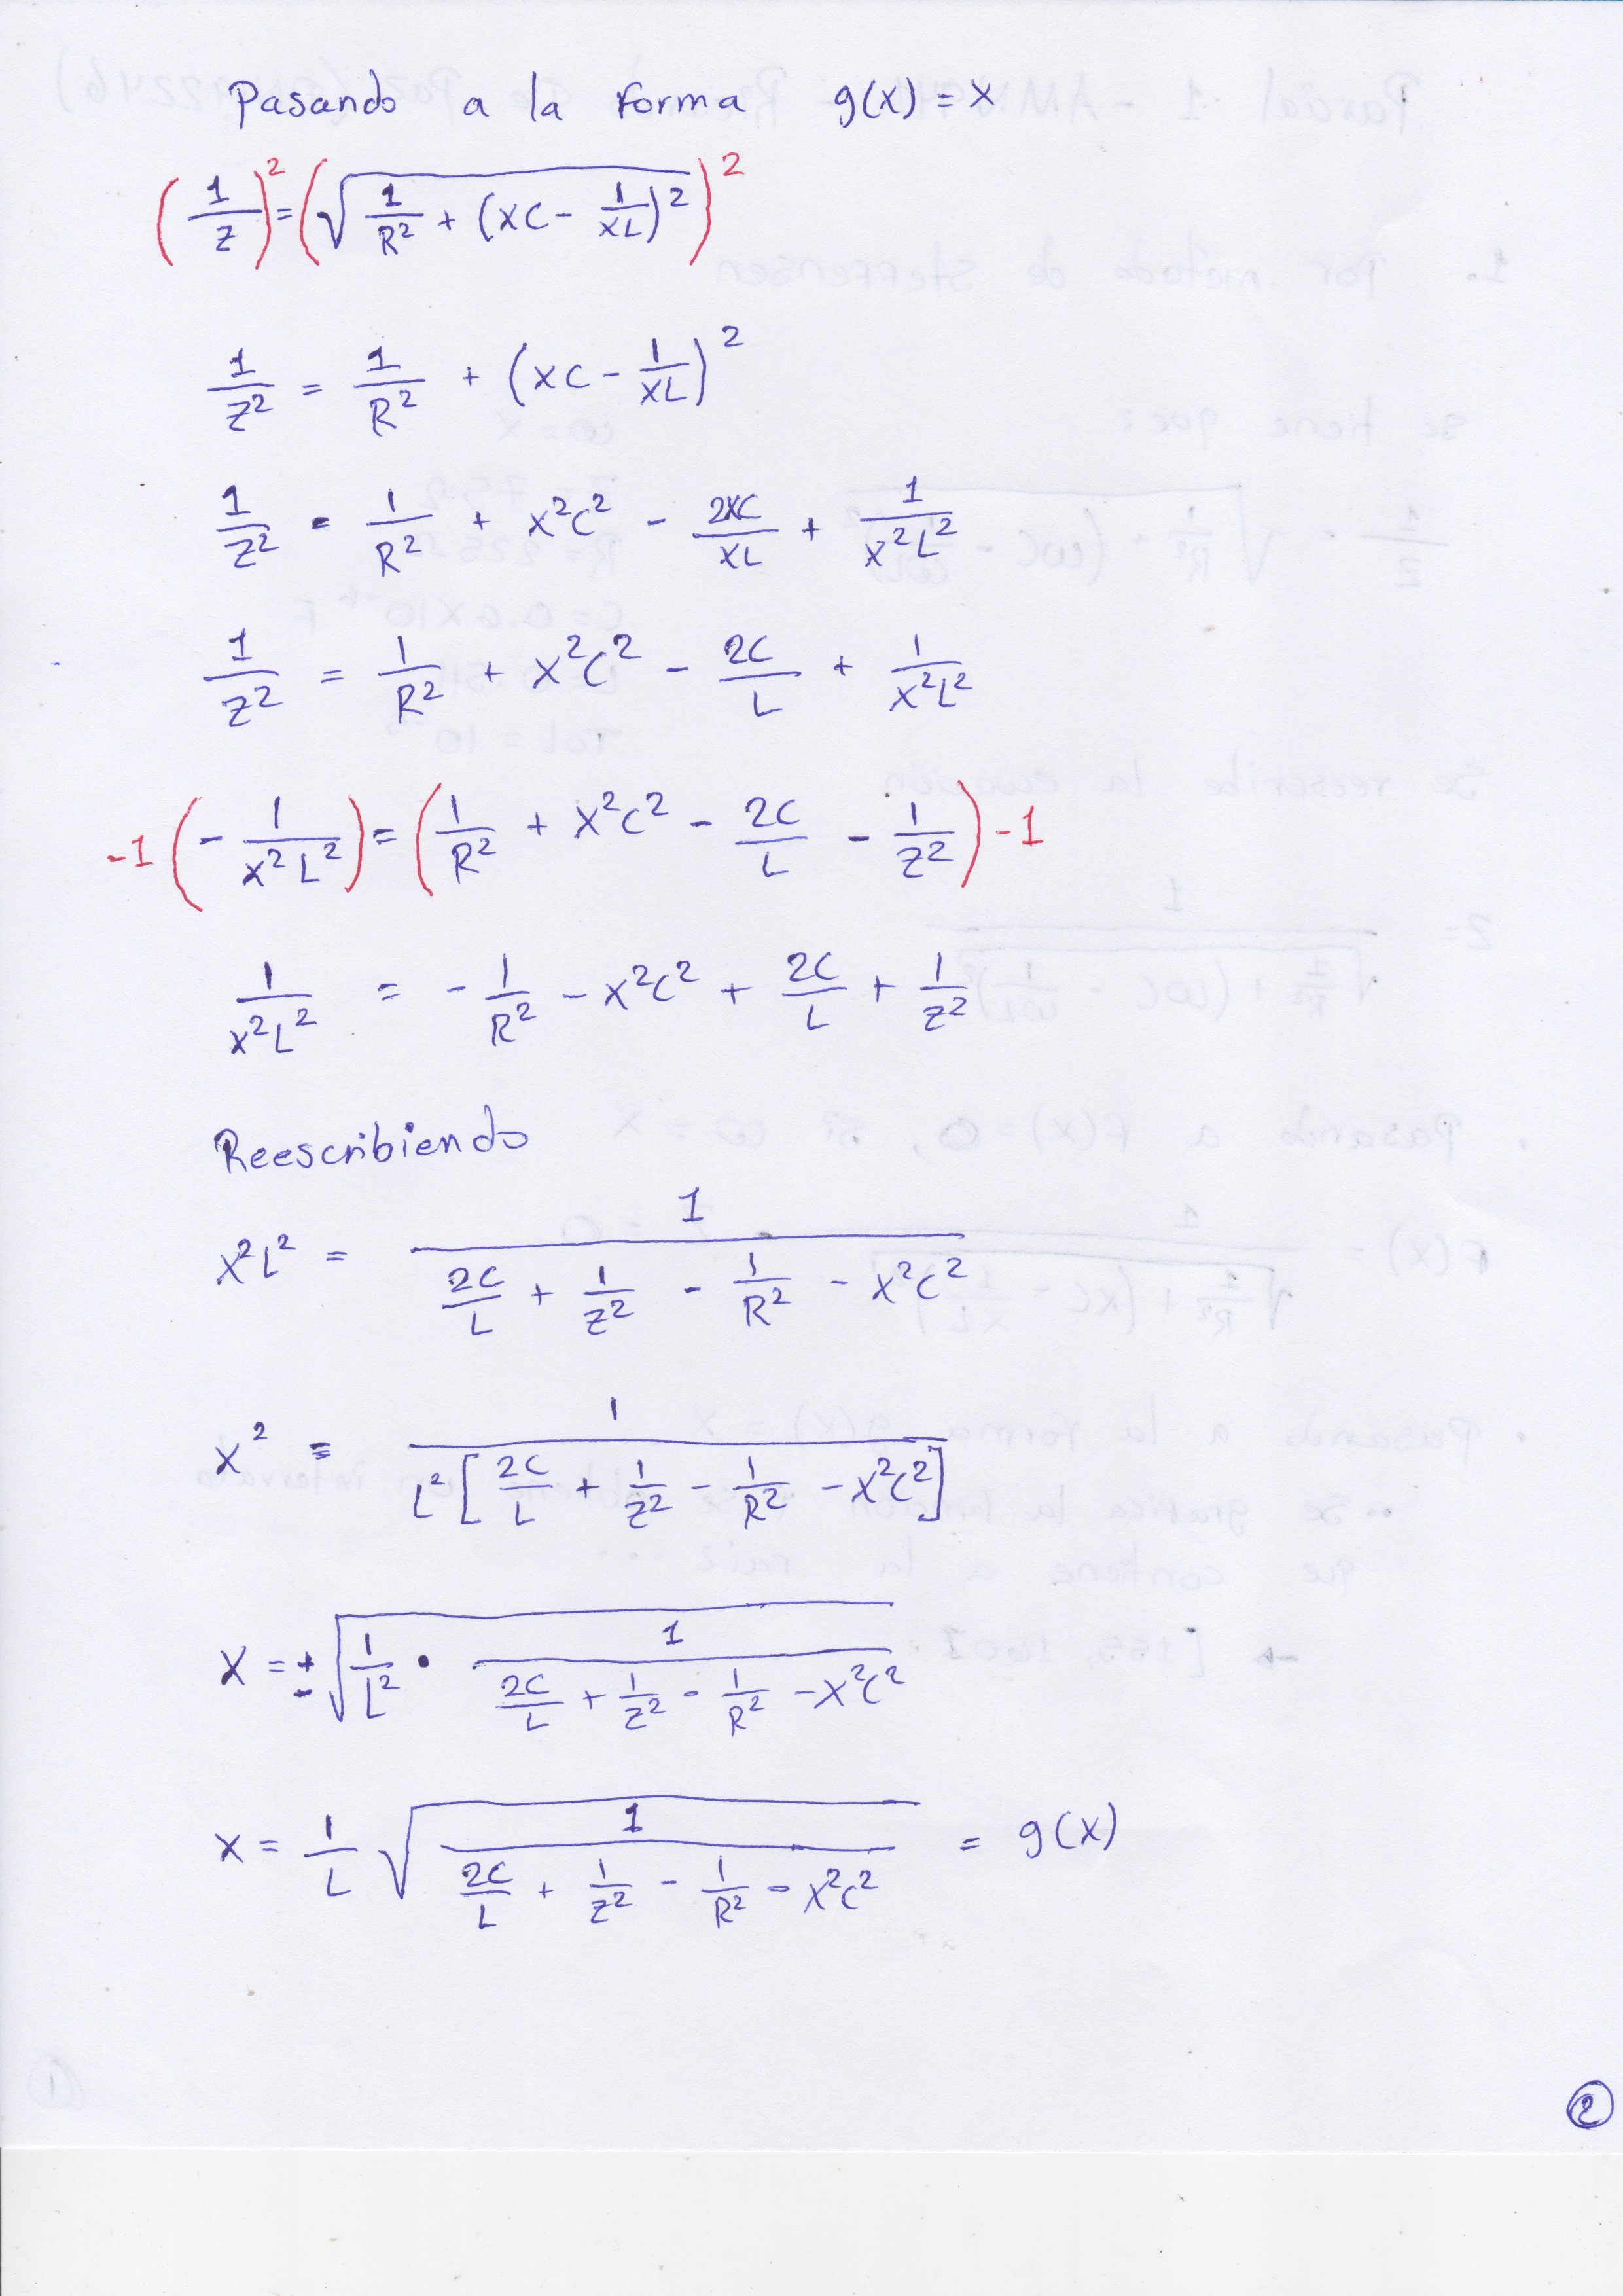 Pasando a la forma g(x) = x
(1/Z)² = (√(1/R² + (xC - 1/xL)²))²
1/Z² = 1/R² + (xC - 1/xL)²
1/Z² = 1/R² + x²C² - 2xC/xL + 1/x²L²
1/Z² = 1/R² + x²C² - 2C/L + 1/x²L²
-1(- 1/x²L²) = (1/R² + x²C² - 2C/L - 1/Z²) -1
1/x²L² = - 1/R² - x²C² + 2C/L + 1/Z²
Reescribiendo
x²L² = 1/(2C/L + 1/Z² - 1/R² - x²C²)
x² = 1/(L² [2C/L + 1/Z² - 1/R² - x²C²])
x = ± √(1/L² · 1/(2C/L + 1/Z² - 1/R² - x²C²))
x = 1/L √(1/(2C/L + 1/Z² - 1/R² - x²C²)) = g(x)
2